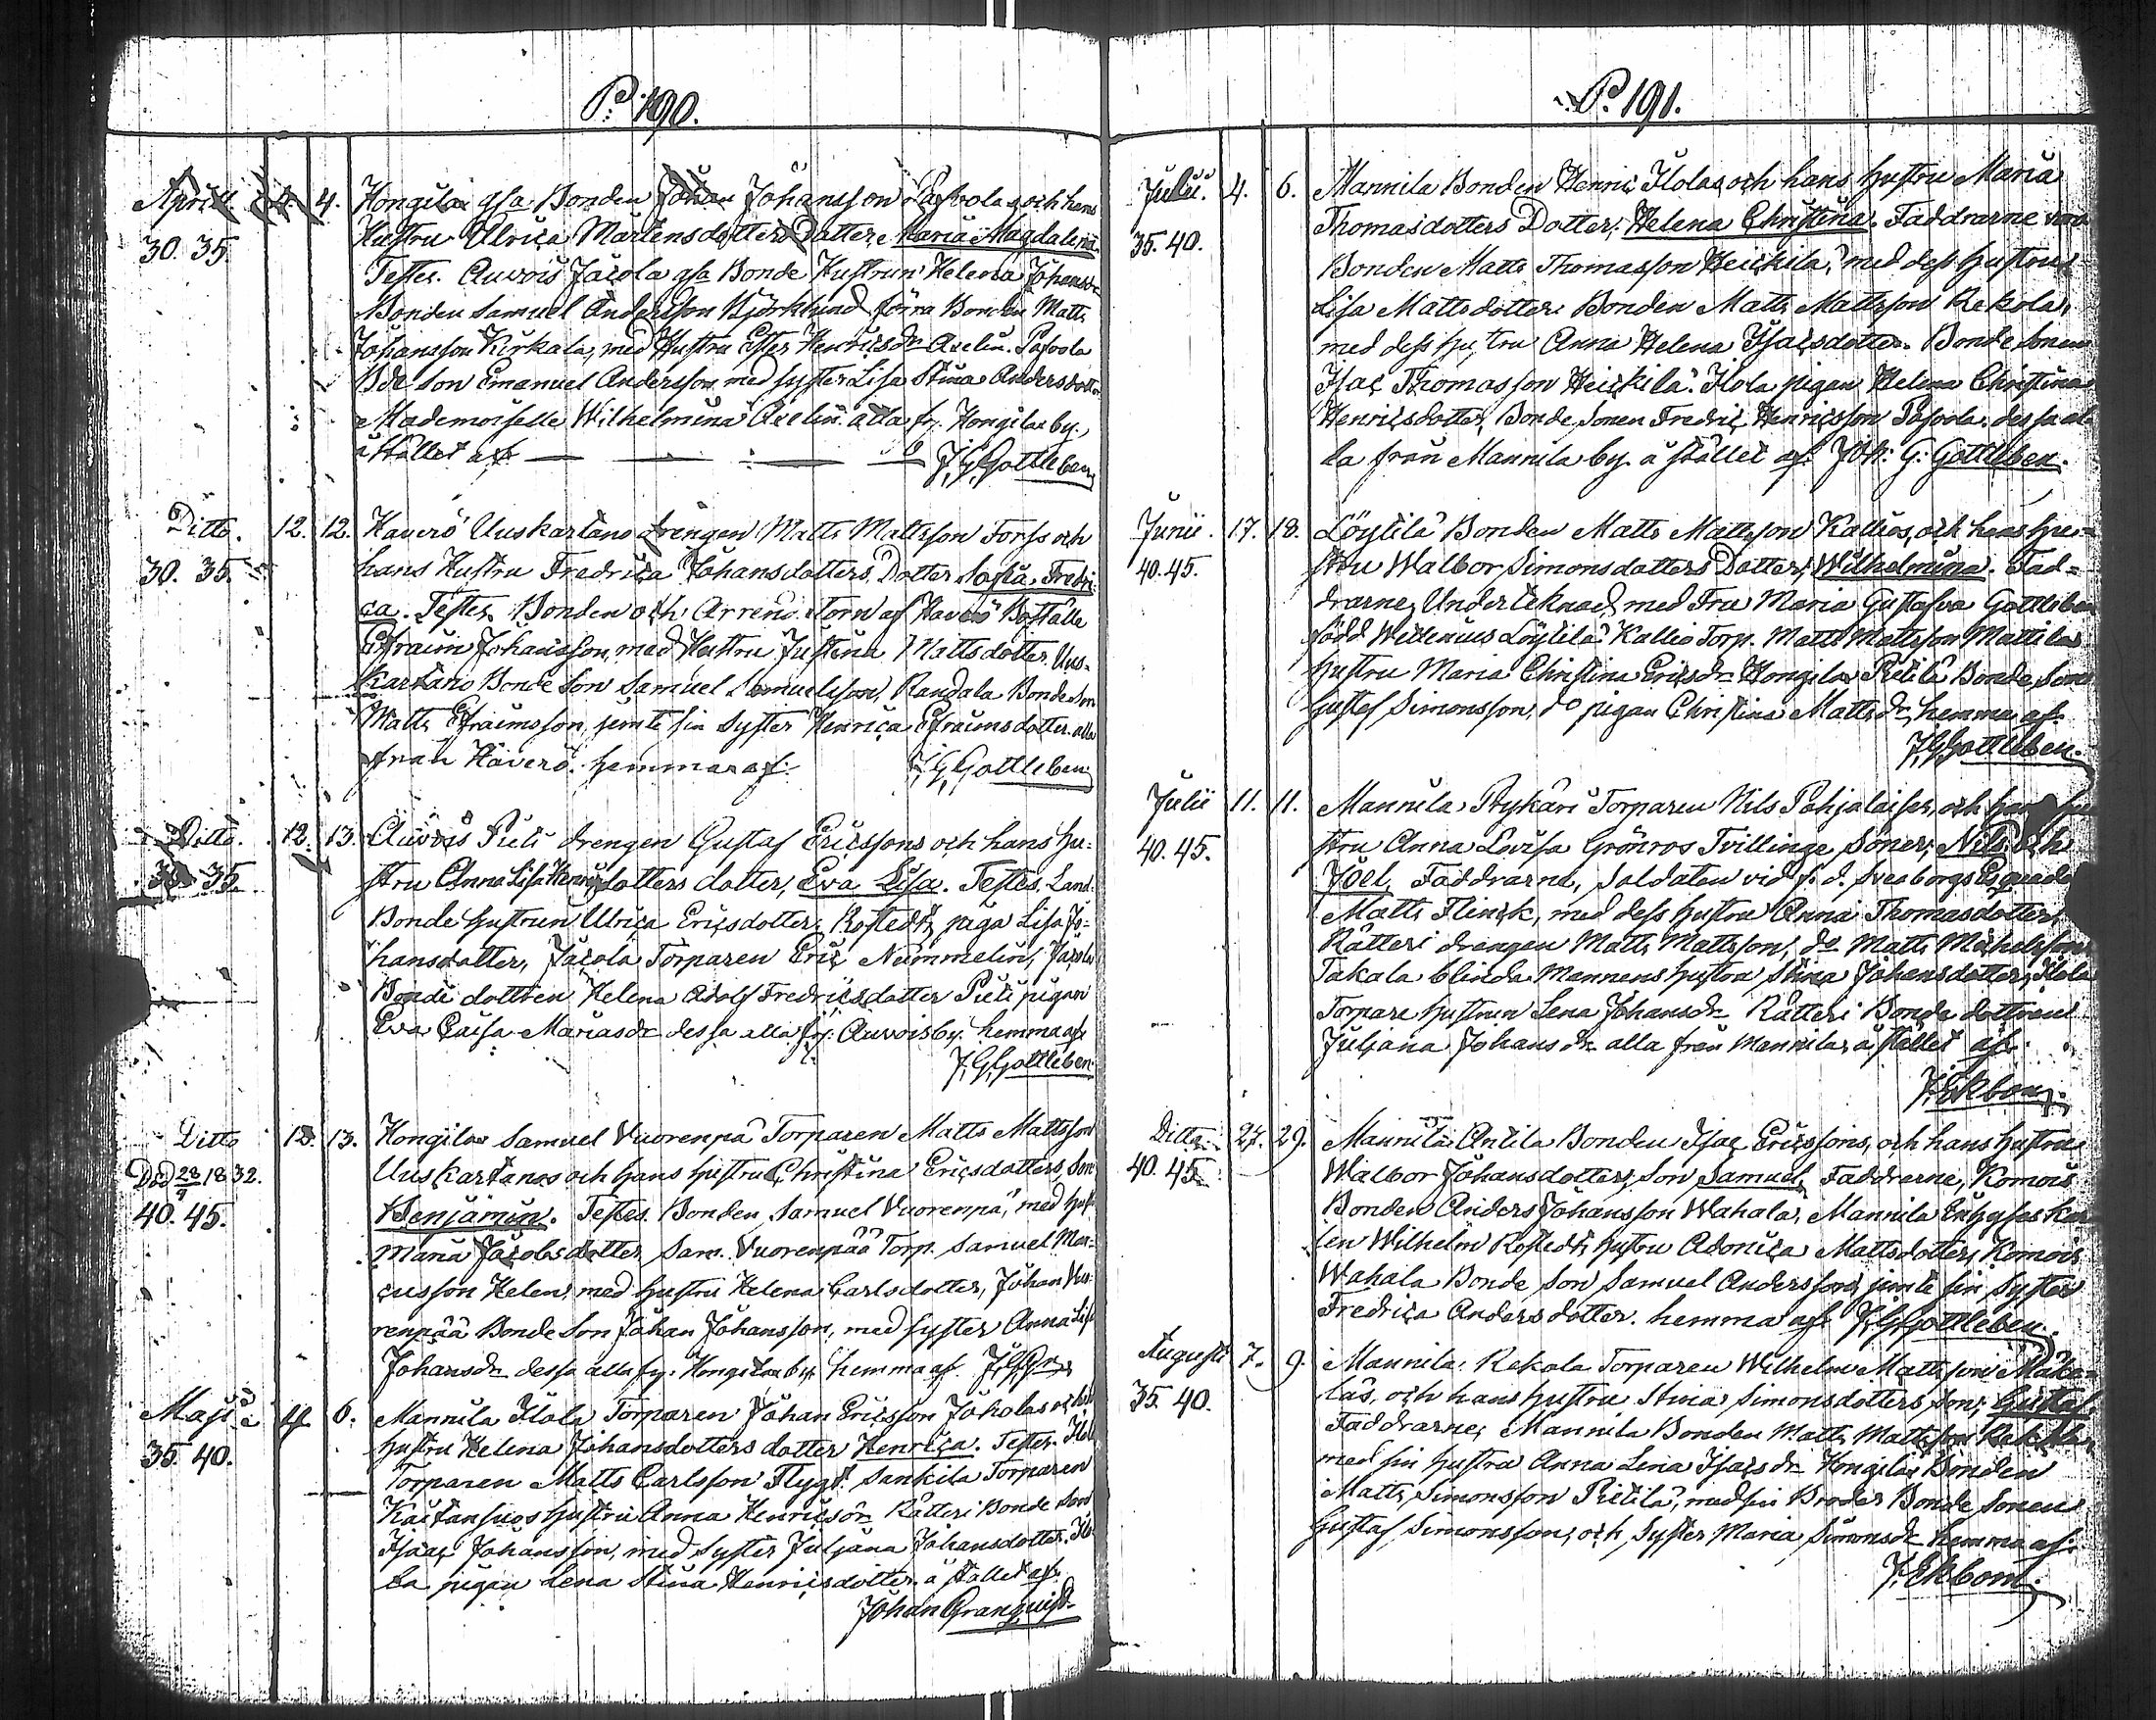 P: 190.
April 4. 4. Hongila gla Bonden Johan Johansson Pasvola och hans
30. 35. Hustru Ulrica Mårtensdotters Dotter, Maria Magdalena
Testes. Auvois Jacola gla Bonde Hustrun Helena Johansdr
Bonden Samuel Andersson Björklund förra Bonden Matts
Johansson Kirkala, med Hustru Ester Henricsdr Pasvola
Bde Son Emanuel Andersson med syster Lisa Stina Andersdotter
Mademoiselle Wilhelmina Axelin alla fr. Hongila by.,
å stället af J, G, Gottleben
Ditto. 12. 12. Haverö Uuskartano drengen Matts Mattsson Forss och
30. 35. hans Hustru Fredrica Johansdotters, Dotter Sofia Fredri-
ca. Testes. Bonden och Arrend Torn af Haverö Boställe
Efraim Johansson, med Hustru Justina Mattsdotter. Uus-
kartano Bonde Son Samuel Samuelsson, Randala Bonde Son
Matts Efraimsson jemte sin Syster Henrica Efraimsdotter. alla
från Haverö. hemma af. J, G, Gottleben
Ditto. 12. 13. Auvois Pieti drengen Gustaf Ericssons och hans hu-
35. stru Anna Lisa Henricsdotters dotter, Eva Lisa. Testes. Land-
Bonde hustrun Ulrica Ericsdotter, Rostedt, piga Lisa Jo-
hansdotter, Jacola Torparen Eric Nummelin, Jacola
Bonde dottren Helena Adolf Fredricsdotter Pieti pigan
Eva Caisa Mariasdr dessa alla fr. Auvois by. hemma af
J, G, Gottleben.
Ditto 12. 13. Hongila Samuel Vuorenpä Torparen Matts Mattsson
Död 28/9 1832. Uuskartanos och hans hustru Christina Ericsdotters, Son
40. 45. Benjamin. Testes. Bonden Samuel Vuorenpä, med hust
Maria Jacobsdotter, Sam. Vuorenpää Torp. Samuel Mar-
cusson Helen, med hustru Helena Carlsdotter, Johan Vuo-
renpää Bonde Son Johan Johansson, med syster Anna Lisa
Johansdr dessa alla fr. Hongila by. hemma af.
Maji 4. 6. Mannila Ilola Torparen Johan Ericsson Jokolas och
35. 40. hustru Helena Johansdotters dotter Henrica. Testes. Ilola
Torparen Matts Carlsson Flygt. Sankila Torparen
hustru Anna Henricsdr Rätteri Bonde Son
Isaac Johansson, med syster Juljana Johansdotter. Ilo-
la pigan Lena Stina Henricsdotter. å stället af.
Johan Granqvist
P. 191.
Julii. 4. 6. Mannila Bonden Henric Ilolas och hans hustru Maria
35. 40. Thomasdotters Dotter; Helena Christina. Faddrarne voro
Bonden Matts Thomasson Heickila, med dess hustru
Lisa Mattsdotter. Bonden Matts Mattsson Rekola,
med dess hustru Anna Helena Isacsdotter. Bonde Sonen
Isac Thomasson Heickilä. Ilola pigan Helena Christina
Henricsdotter, Bonde Sonen Fredric Henricsson Pasvola. dessa al-
la från Mannila by. å stället af. Joh: G: Gottleben.
Junii. 17. 18. Löytilä Bonden Matts Mattsson Kallios, och hans hu-
40. 45. stru Walbor Simonsdotters Dotter; Wilhelmina. Fad-
drarne, Underteknad, med Fru Maria Gustafva Gottleben
född Löytilä Kallio Torp. Matts Mattsson Mattila
hustru Maria Christina Ericsdr Hongila Pietilä Bonde Son
Gustaf Simonsson, do pigan Christina Mattsdr. hemma af.
J, G, Gottleben.
Julii 11. 11. Mannila Torparen Nils Pohjalaises, och hans hu-
40. 45. stru Anna Lovisa Grönros Tvillinge Söner; Nils och
Joel, Faddrarne, Soldaten vid f. d. Sveaborgs Esquader
Matts Flinck, med dess hustru Anna Thomasdotter,
Rätteri drengen Matts Mattsson, do Matts Michelsson
Takala blinda Mannens hustru Stina Johansdotter, Ilola
Torpare hustrun Lena Johansdr Rätteri Bonde dottren
Juljana Johansdr alla från Mannila, å stället af.
J. Ekbom.
Ditto. 27. 29. Mannila Antila Bonden Isac Ericssons, och hans hustru
40. 45. Walbor Johansdotters, Son Samuel, Faddrarne, Komois
Bonden Anders Johansson Wahala, Mannila
Wilhelm Rostedts hustru Adonica Mattsdotter, Komois
Wahala Bonde Son Samuel Andersson, jemte sin Syster
Fredrica Andersdotter. hemma af. J, G, Gottleben.
Augusti 7. 9. Mannila Rekola Torparen Wilhelm Mattsson Mäke-
35. 40. läs, och hans hustru Stina Simonsdotters Son; Gustaf
Faddrarne; Mannila Bonden Matts Mattsson Rekola,
med sin hustru Anna Lena Isacsdr Hongila Bonden
Matts Simonsson Pietilä, med sin Broder Bonde Sonen
Gustaf Simonsson, och Syster Maria Simonsdr hemma af.
J. Ekbom.